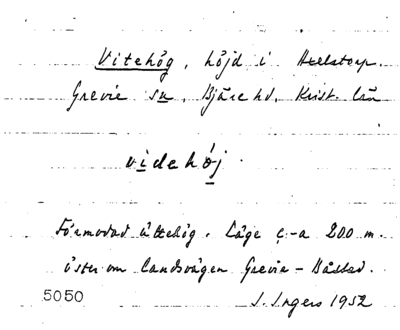 Vitehög, höjd i Atelstorp.
Grevie sn, Bjäre hd, Krist. län
videhöj.
Förmodad ättehög. Läge c-a 200 m.
öster om landsvägen Grevie - Båstad.
5050 I. Ingers 1952